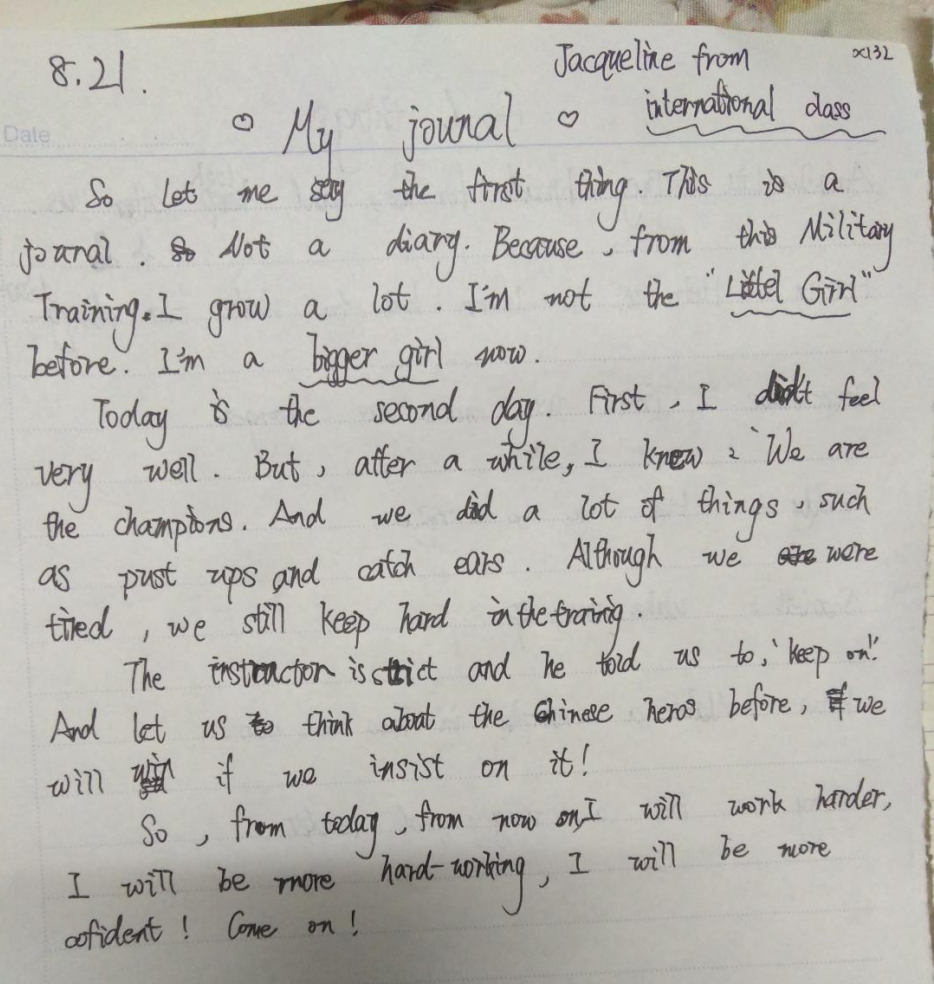 8.21.
Jacqueline from
international class
x132
Date
My jounal
So Let me say the first thing. This is a
jouranal. So Not a diary. Because, from this Military
Training. I grow a lot. I'm not the "Littel Girl"
before. I'm a bigger girl now.
Today is the second day. First, I didn't feel
very well. But, after a while, I know: "We are
the champions. And we did a lot of things, such
as pust ups and catch ears. Although we were
tired, we still keep hard in the traring.
The instructor is strict and he told us to, "keep on".
And let us to think about the Chinese heros before, if we
will win if we insist on it!
So, from today, from now on, I will work harder,
I will be more hard-working, I will be more
cofident! Come on!